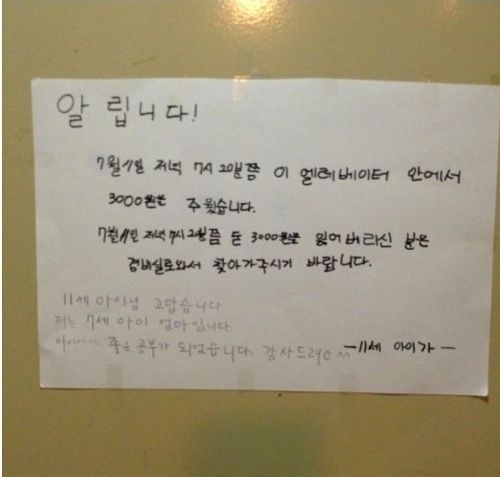 알립니다!
7월 11일 저녁 7시 20분쯤 이 엘레베이터 안에서
3000원을 주웠습니다.
7월 11일 저녁 7시 20분쯤 돈 3000원을 잃어버리신 분은
경비실로와서 찾아가주시기 바랍니다.
11세 아이님 고맙습니다
저는 7세 아이 엄마입니다
아이에게 좋은 공부가 되었습니다. 감사드려요 ^^
-11세 아이가-